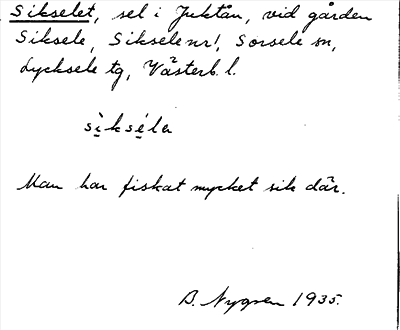 Sikselet, sel i Juktån, vid gården
Siksele, Siksele nr 1, Sorsele sn,
Lycksele tg, Västerb. l.
sìkséla
Man har fiskat mycket sik där.
B. Nygren 1935.